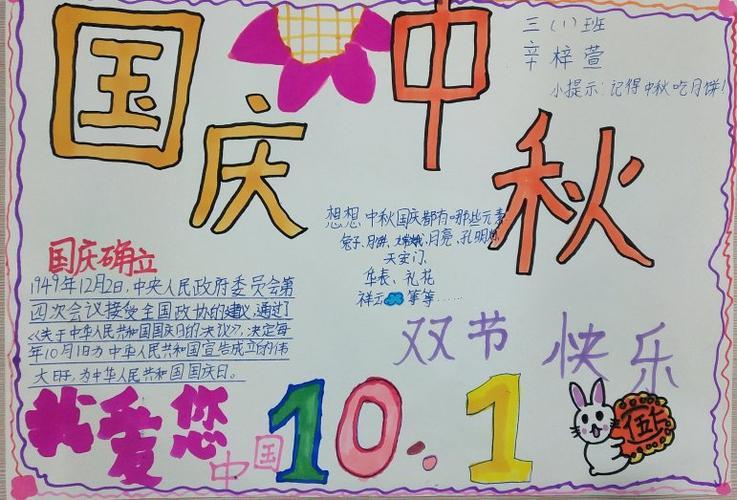 国庆
中秋
三（1）班
辛梓萱
小提示：记得中秋吃月饼！
想想中秋国庆都有哪些元素
兔子、月饼、嫦娥、月亮、孔明灯
天安门、
华表、礼花
祥云等等……
国庆确立
1949年12月2日，中央人民政府委员会第
四次会议接受全国政协的建议，通过了
《关于中华人民共和国国庆日的决议》，决定每
年10月1日为中华人民共和国宣告成立的伟
大日子，为中华人民共和国国庆日。
双节快乐
我爱您
中国
10.1
五仁